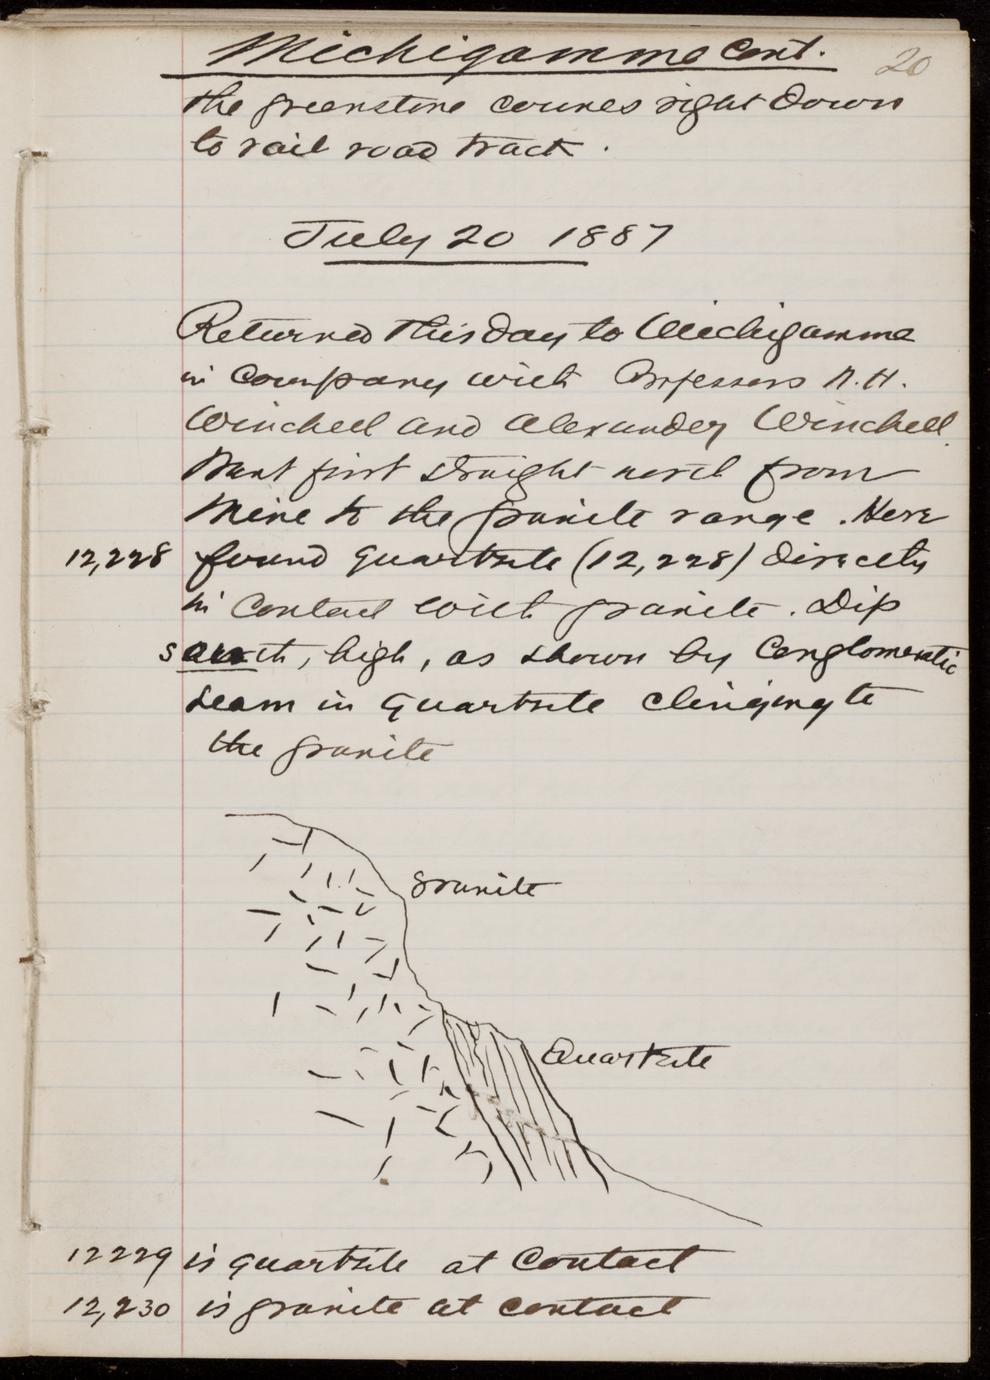 Michigamme Cont. 20
the greenstone comes right down
to rail road track.
July 20 1887
Returned this day to Michigamme
in company with Professors N. H.
Winchell and Alexander Winchell
Went first straight north from
Mine to the granite range. Here
12,228 found quartzite (12,228) directly
in contact with granite. Dip
south, high, as shown by Conglomeratic
seam in quartzite clinging to
the granite
granite
Quartzite
12229 is quartzite at contact
12,230 is granite at contact